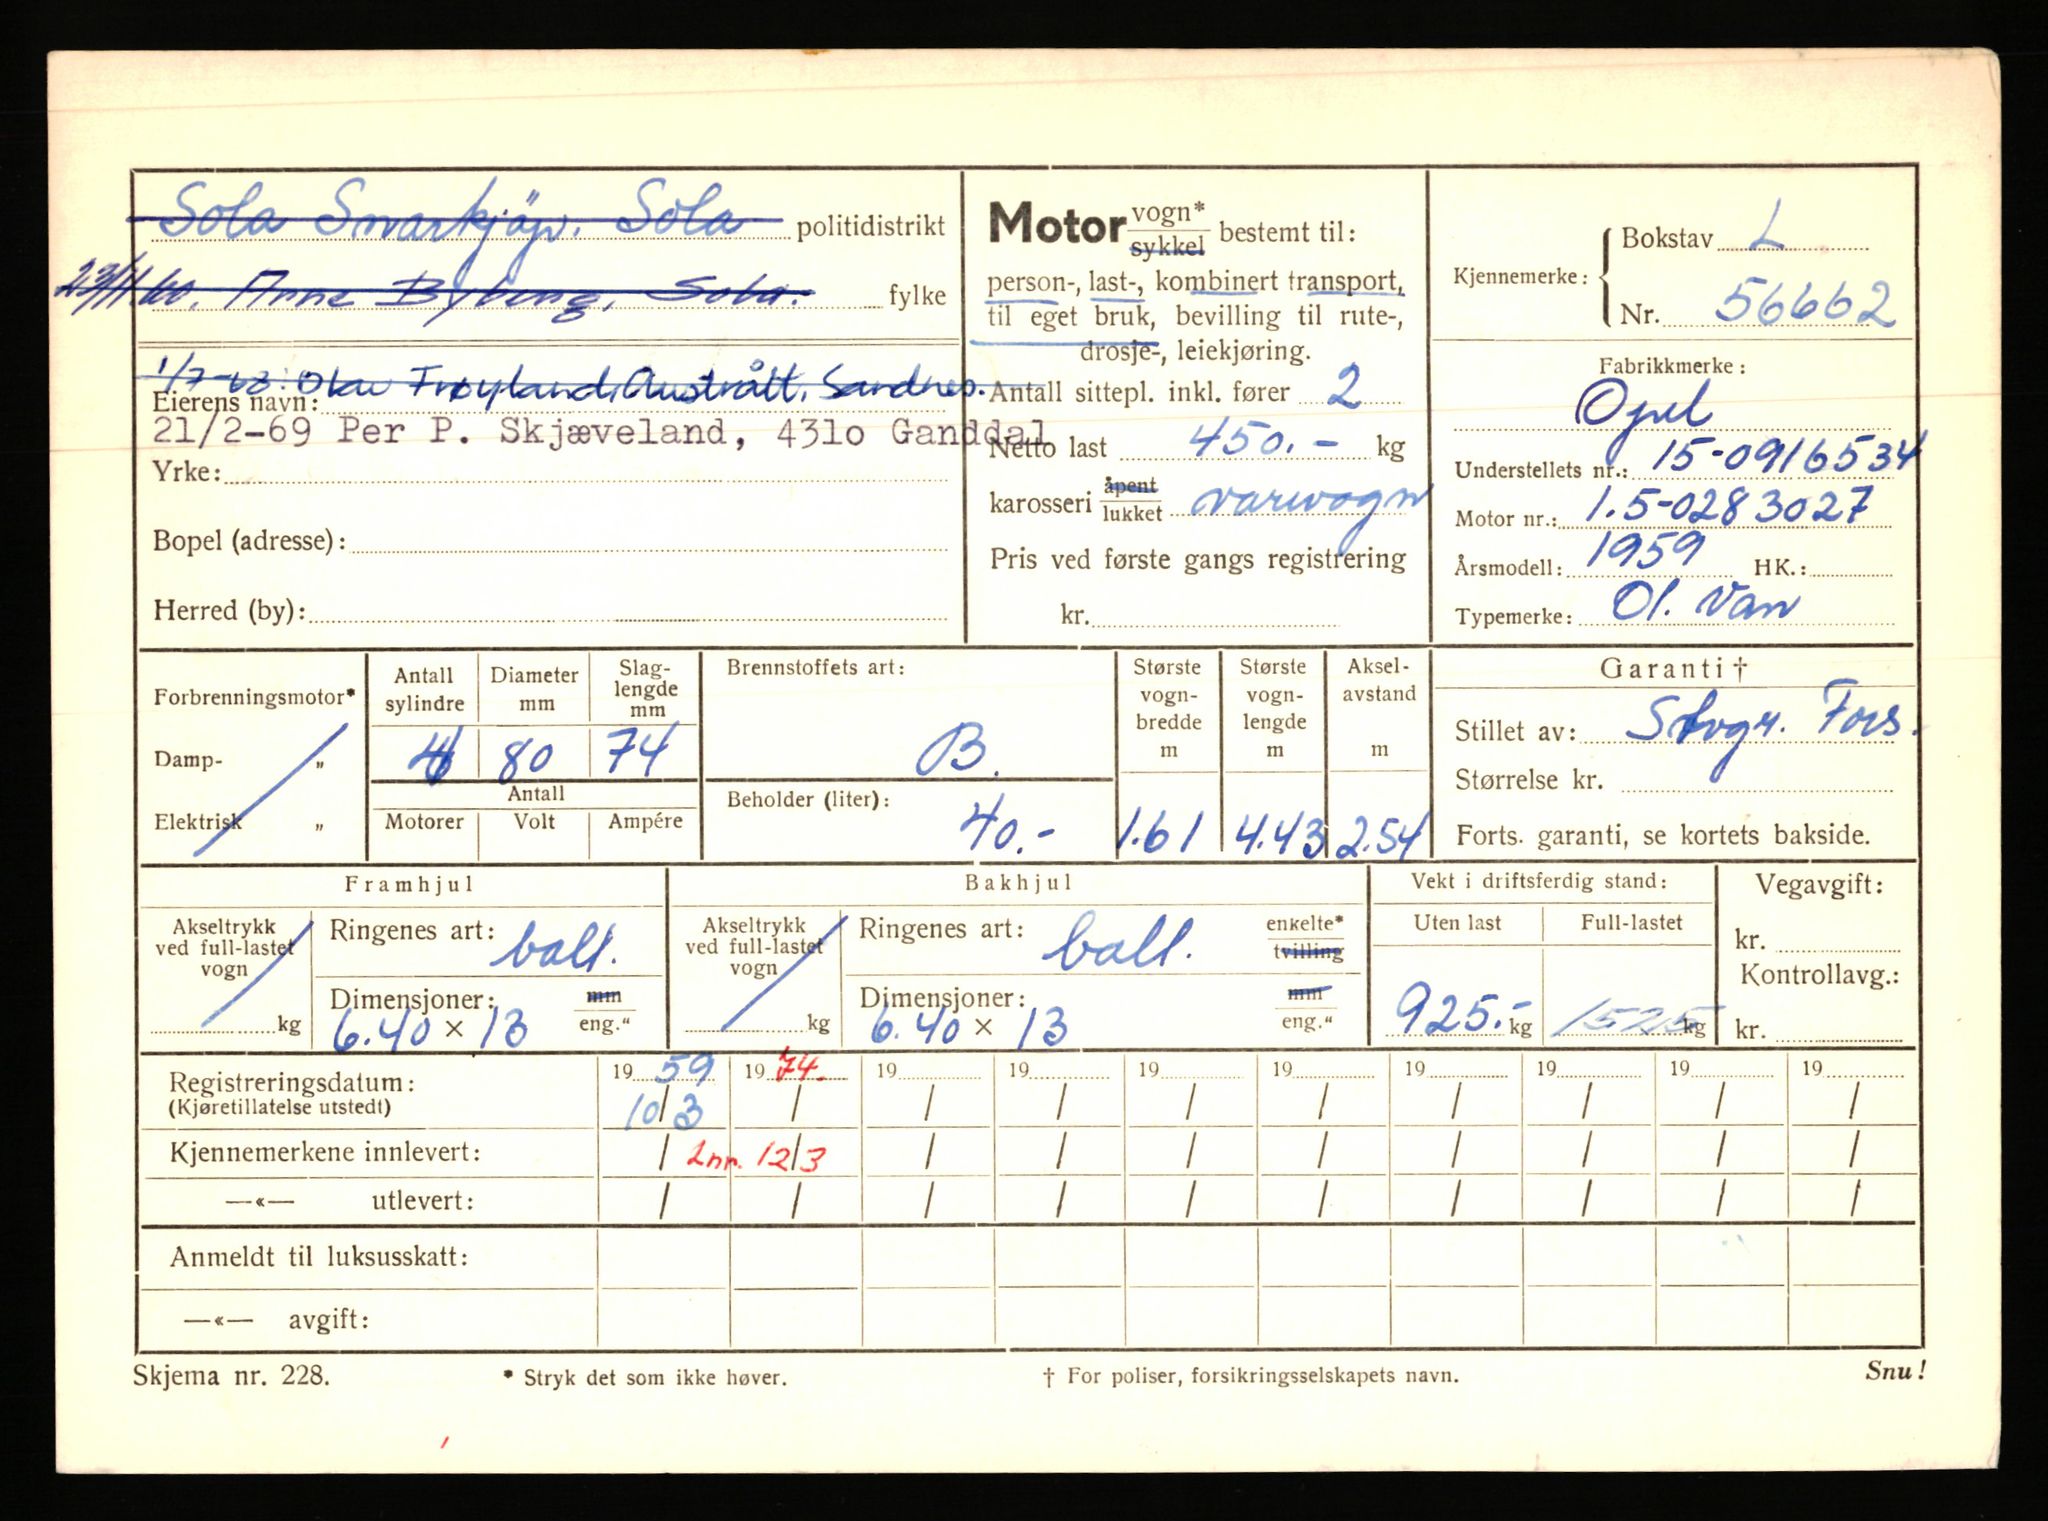 Sola Smarkjøp. Sola politidistrikt
23/11.60. Arne Byberg, Sola. fylke
1/7-63: Olav Frøyland, Austrått, Sandnes.
Eierens navn:
21/2-69 Per P. Skjæveland, 4310 Ganddal
Yrke:
Bopel (adresse):
Herred (by):
Motor vogn* sykkel bestemt til:
person-, last-, kombinert transport,
til eget bruk, bevilling til rute-,
drosje-, leiekjøring.
Antall sittepl. inkl. fører 2
Netto last 450.- kg
karosseri åpent lukket varevogn
Pris ved første gangs registrering
kr.
Kjennemerke: Bokstav L
Nr. 56662
Fabrikkmerke:
Opel
Understellets nr.: 15-0916534
Motor nr.: 1.5-0283027
Årsmodell: 1959 HK.:
Typemerke: Ol. Van
Forbrenningsmotor*
Damp- „
Elektrisk „
Antall sylindre Diameter mm Slag-lengde mm
4 80 74
Antall
Motorer Volt Ampére
Brennstoffets art:
B.
Beholder (liter):
40.-
Største vogn-bredde m Største vogn-lengde m Aksel-avstand m
1.61 4.43 2.54
Garanti †
Stillet av: Stvgr. Fors.
Størrelse kr.
Forts. garanti, se kortets bakside.
Framhjul
Akseltrykk ved full-lastet vogn kg
Ringenes art: ball.
Dimensjoner: mm
6.40 × 13 eng."
Bakhjul
Akseltrykk ved full-lastet vogn kg
Ringenes art: ball. enkelte* tvilling
Dimensjoner: mm
6.40 × 13 eng."
Vekt i driftsferdig stand:
Uten last Full-lastet
925.- kg 1525 kg
Vegavgift:
kr.
Kontrollavg.:
kr.
Registreringsdatum: 19 59 19 74. 19 19 19 19 19 19 19 19
(Kjøretillatelse utstedt) 10/3 / / / / / / / / /
Kjennemerkene innlevert: / 2nr. 12/3 / / / / / / / /
—«— utlevert: / / / / / / / / / /
Anmeldt til luksusskatt:
—«— avgift:
Skjema nr. 228. * Stryk det som ikke høver. † For poliser, forsikringsselskapets navn. Snu!